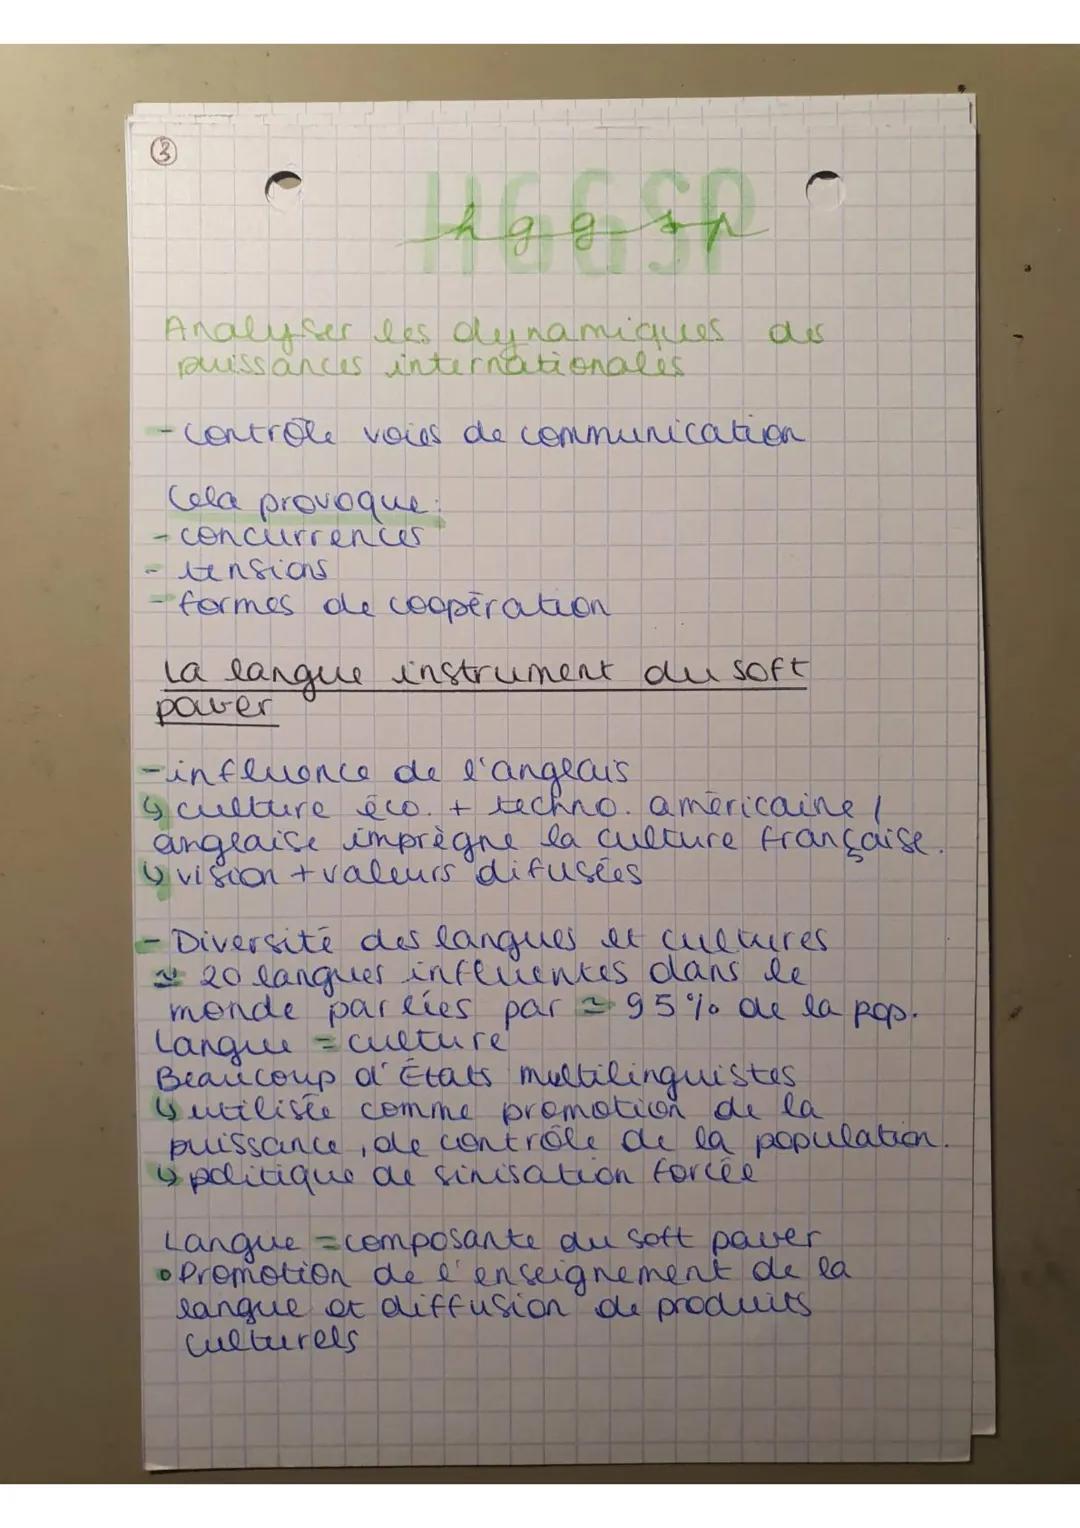 3
HGGSP
hggsp
Analyser les dynamiques des
puissances internationales
- contrôle voies de communication
Cela provoque:
- concurrences
- tensions
- formes de coopération
La langue instrument du soft
power
- influence de l'anglais
↳ culture éco. + techno. américaine /
anglaise imprègne la culture française.
↳ vision + valeurs difusées
- Diversité des langues et cultures
≃ 20 langues influentes dans le
monde parlées par ≃ 95% de la pop.
Langue = culture
Beaucoup d'États multilinguistes
↳ utilisée comme promotion de la
puissance, de contrôle de la population.
↳ politique de sinisation forcée
Langue = composante du soft power
• Promotion de l'enseignement de la
langue et diffusion de produits
culturels